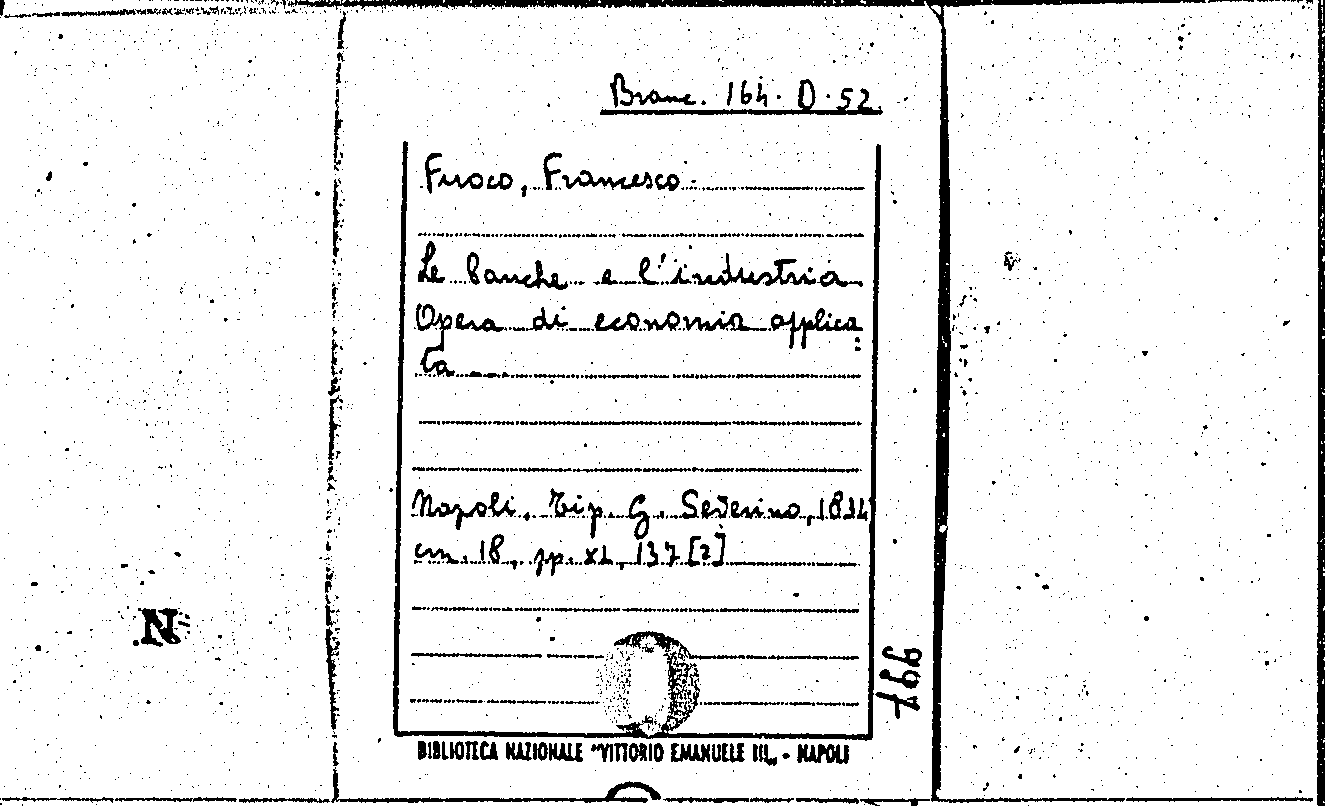 Branc. 164. D. 52.
Fuoco, Francesco.
Le banche e l'industria.
Opera di economia applica
ta ...
Napoli, Tip. G. Severino, 1834
cm. 18, pp. XL, 137 [2]
BIBLIOTECA NAZIONALE "VITTORIO EMANUELE III„ - NAPOLI
N